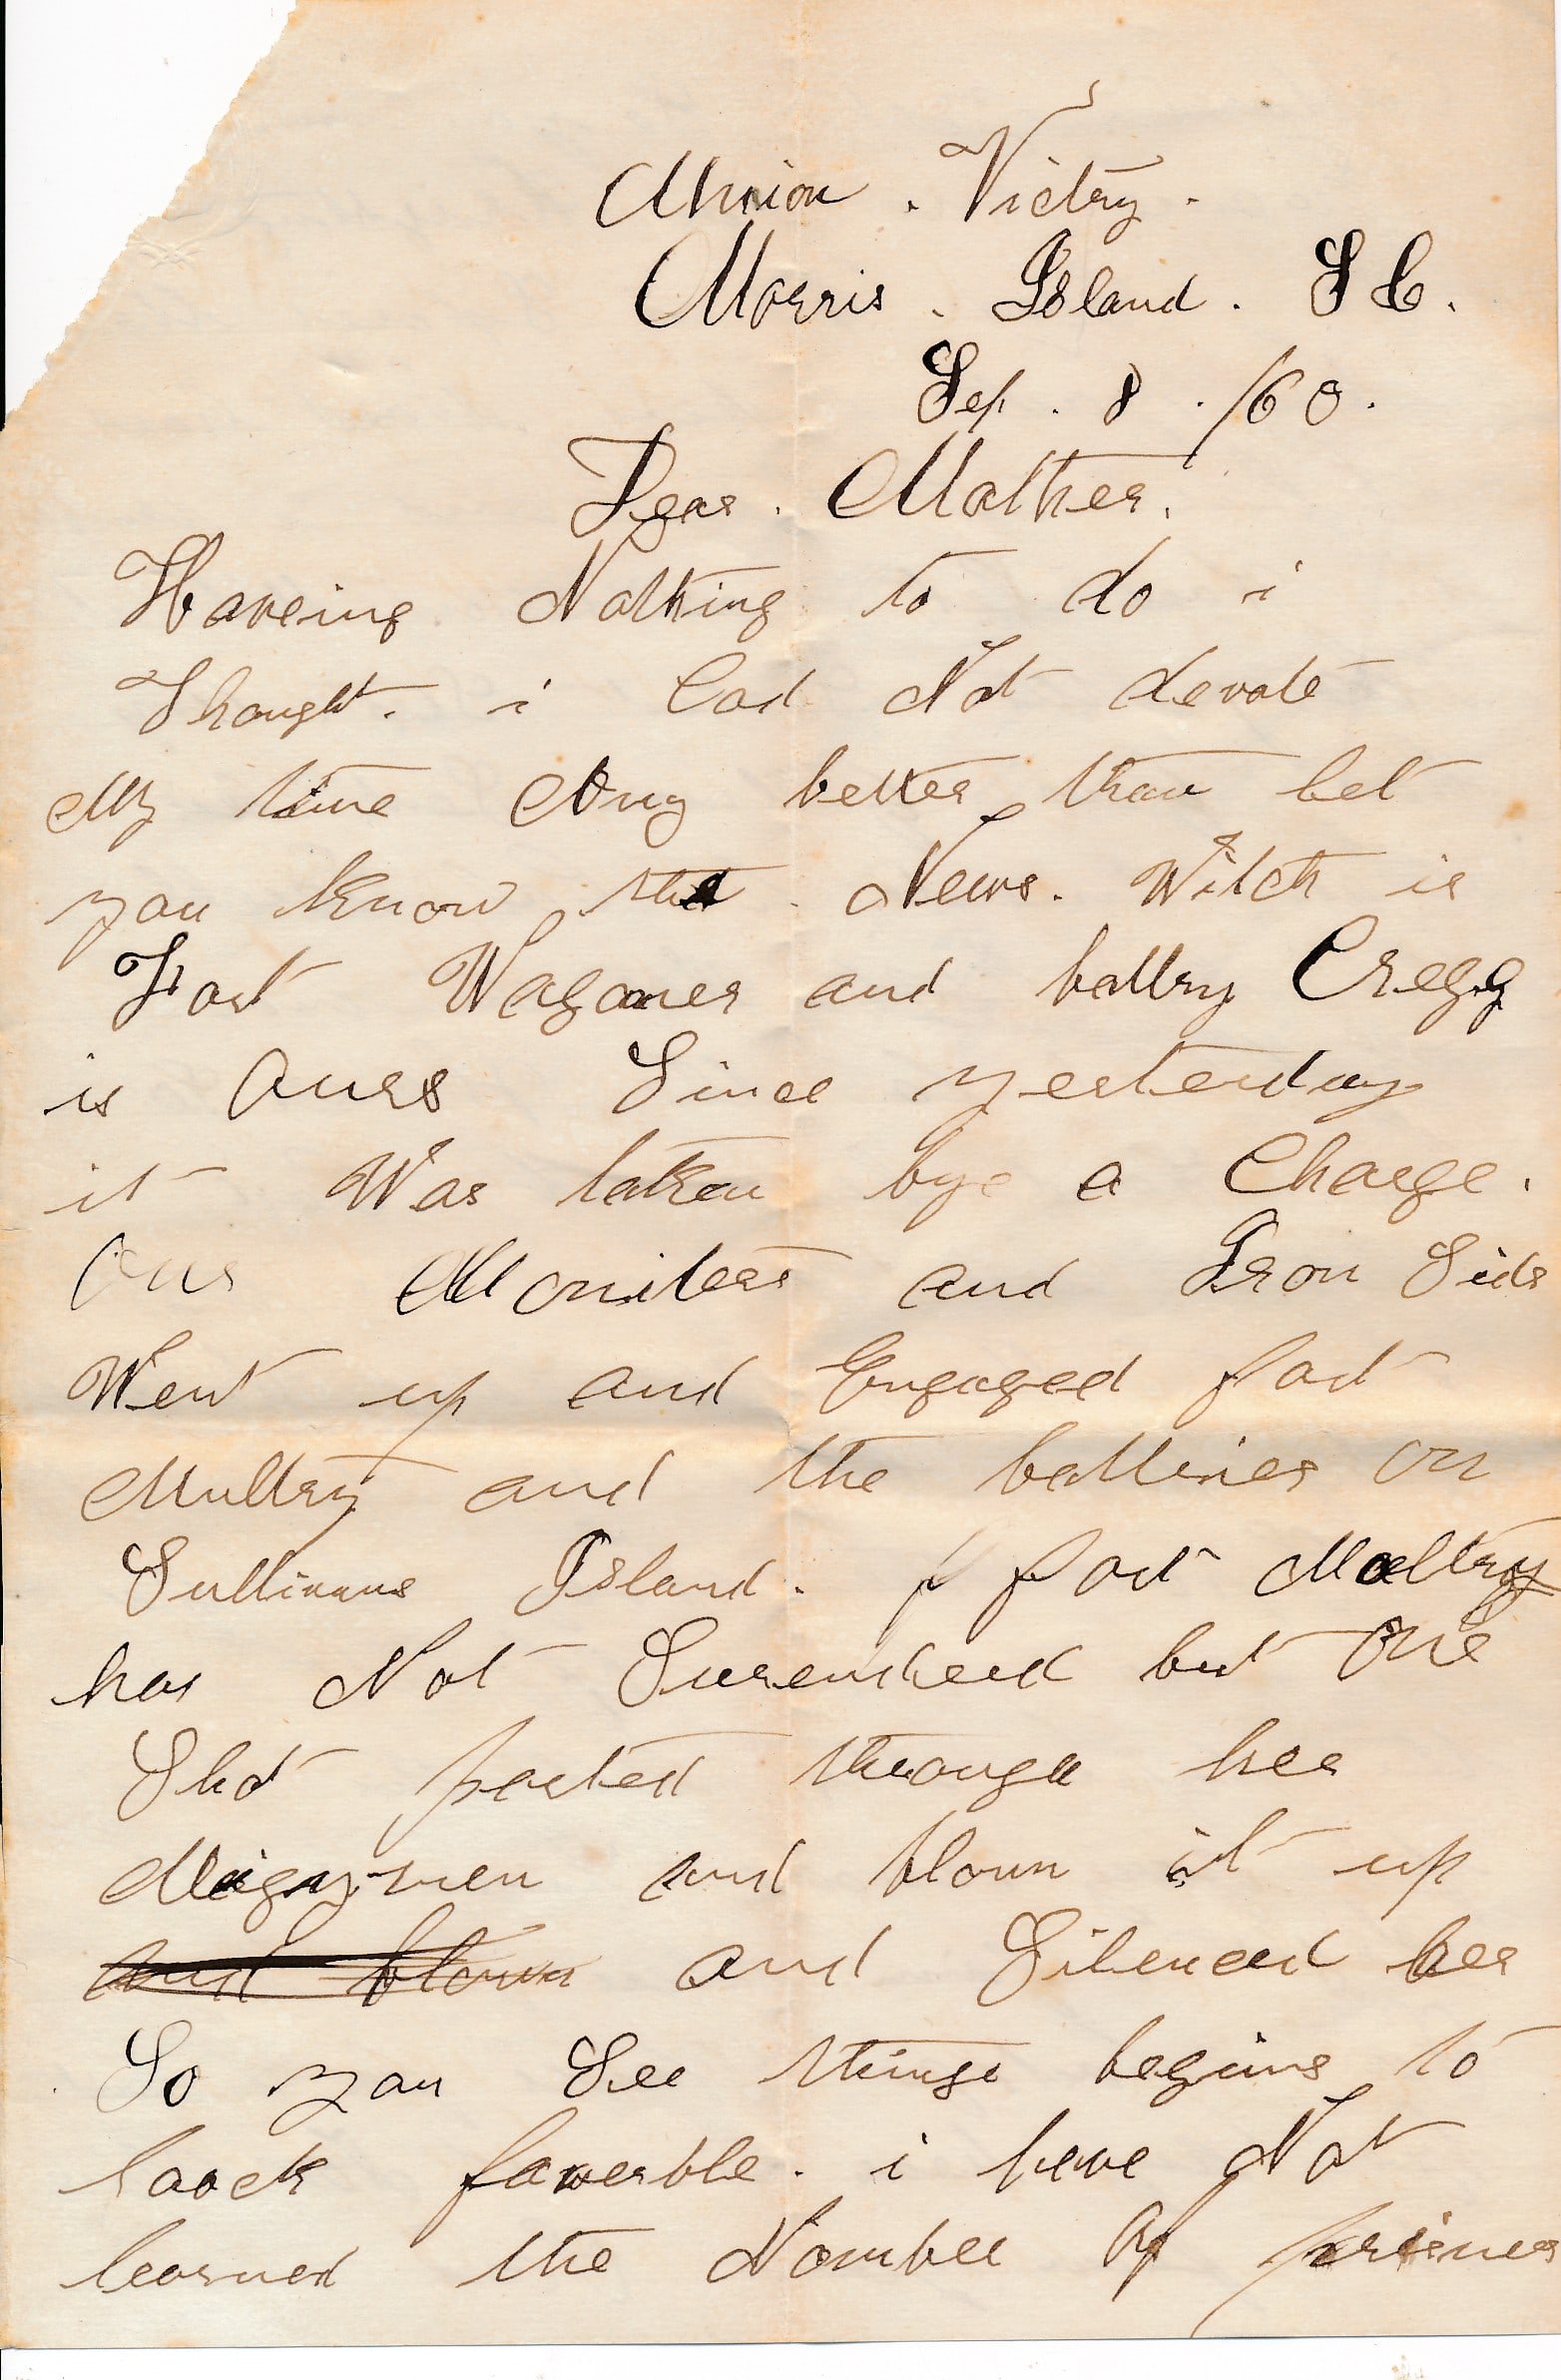 Union . Victry .
Morris . Island . S C .
Sep . 8 . /60 .
Dear . Mother .
Haveing Nothing to do i
Thought . i Cod Not devote
My time Any better than let
you know the . News . Witch is
Fort Wagoner and battry Cregg
is Ours Since yesterday
it Was taken bye a Charge .
Our Moniters and Iron Sids
Went up and Engaged fort
Multry and the batteries on
Sullivans Island . f fort Moltry
has Not Surenderd but One
Shot parted through her
and blown it up
and blown and Silenced her
So you See things begins to
loock faverble . i have Not
learned the Nomber Of prisners